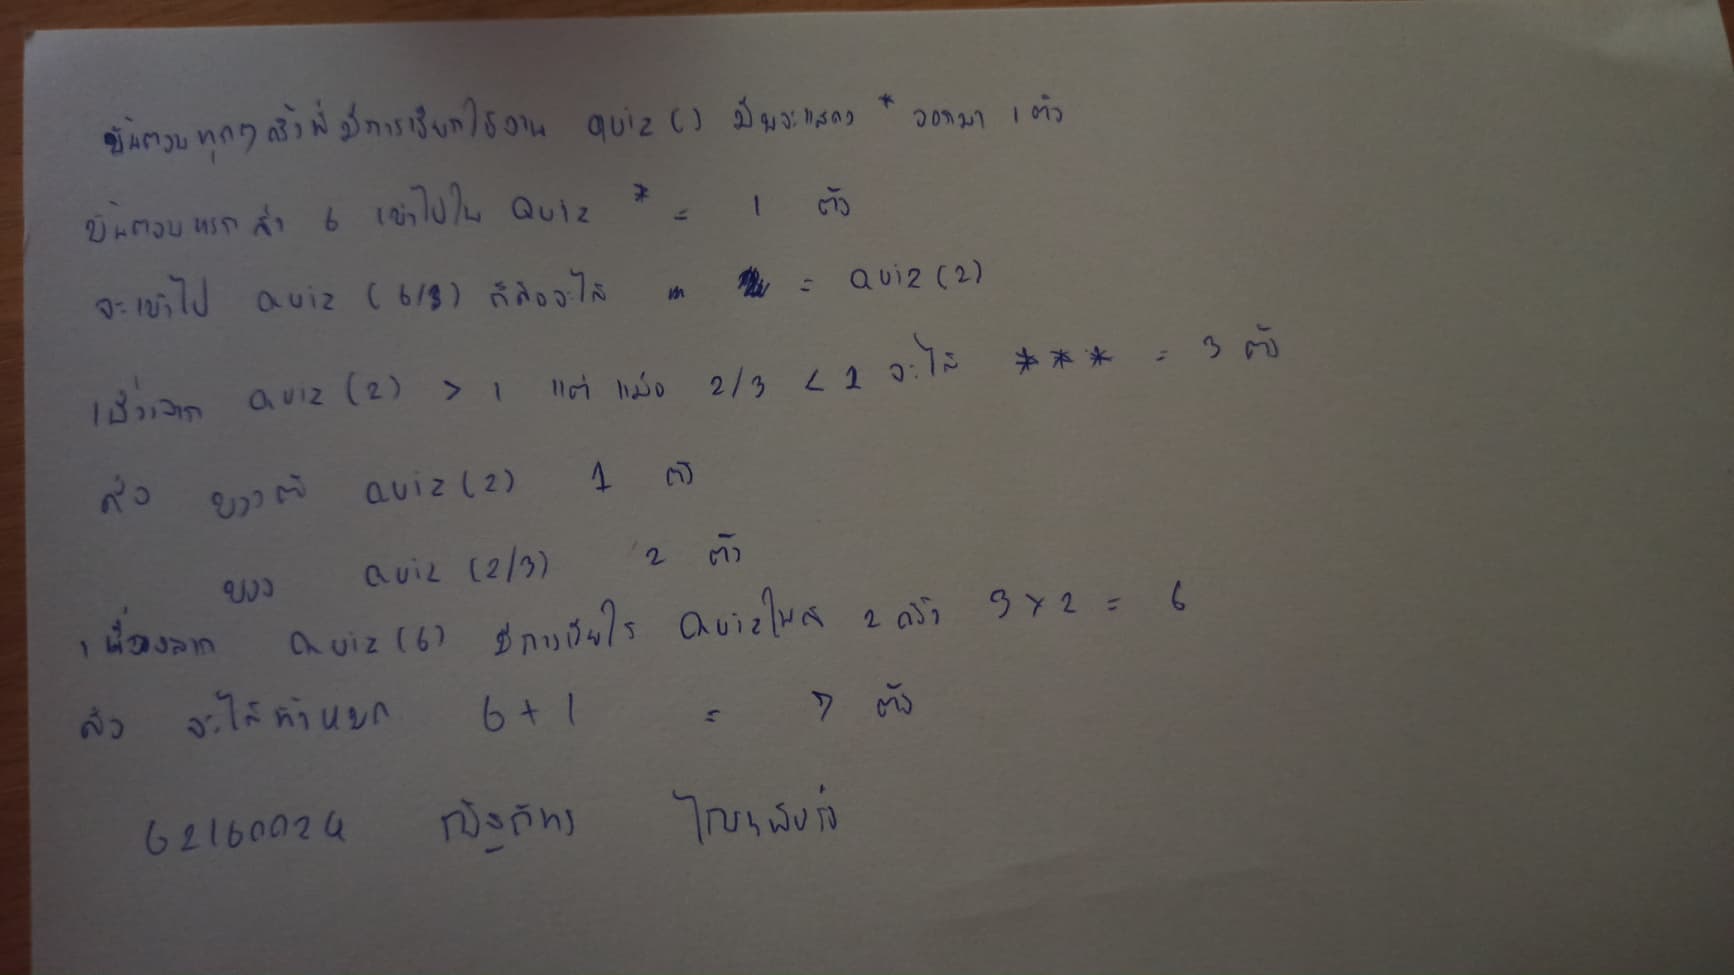 ขั้นตอน ทุกๆ ครั้งที่ มีการเรียกใช้งาน quiz ( ) มันจะแสดง * ออกมา 1 ตัว
ขั้นตอนแรก ส่ง 6 เข้าไปใน Quiz * = 1 ตัว
จะเข้าไป Quiz ( 6/3 ) ก็คือจะได้ = Quiz (2)
เนื่องจาก Quiz (2) > 1 แต่ เมื่อ 2/3 < 1 จะได้ * * * = 3 ตัว
คือ ของตัว Quiz (2) 1 ตัว
ของ Quiz (2/3) 2 ตัว
เนื่องจาก Quiz (6) มีการเรียกใช้ Quiz 2 ครั้ง 3 x 2 = 6
คือ จะได้ทั้งหมด 6 + 1 = 7 ตัว
62160024